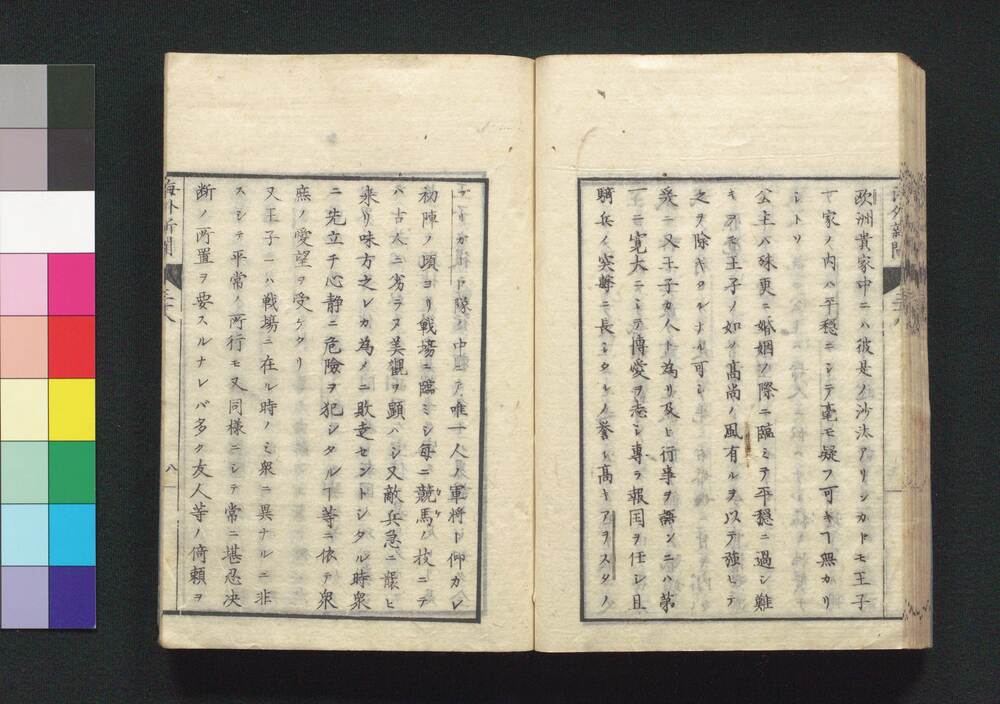 欧洲貴家中ニハ彼是ノ沙汰アリシカドモ王子
一家ノ内ハ平穏ニシテ毫モ疑フ可キヿ無カリ
シトソ
公主ハ殊更ニ婚姻ノ際ニ臨ミテ平穏ニ過シ難
キヲ王子ノ如ク高尚ノ風有ルヲ以テ強ヒテ
之ヲ除キタルナル可シ
爰ニ又王子カ人ト為リ及ヒ行事ヲ論センニハ第
一ニ寛大ニシテ博愛ヲ志シ専ラ報国ヲ任シ且
騎兵ノ突撃ニ長シタルノ誉レ高キアヲスタノ
隊ノ中ニテ唯一人ノ軍将ト仰カレ
初陣ノ頃ヨリ戦場ニ臨ミシ毎ニ競馬ノ技ニテ
ハ古人ニ劣ラヌ美観ヲ顕ハシ又敵兵急ニ襲ヒ
来リ味方之レカ為メニ敗走セントシタル時衆
ニ先立チ心静ニ危険ヲ犯シタルヿ等ニ依テ衆
庶ノ愛望ヲ受ケタリ
又王子ハ戦場ニ在ル時ノミ衆ニ異ナルニ非
スシテ平常ノ所行モ又同様ニシテ常ニ堪忍决
断ノ所置ヲ要スルナレバ多ク友人等ノ倚頼ヲ
海外新聞
八